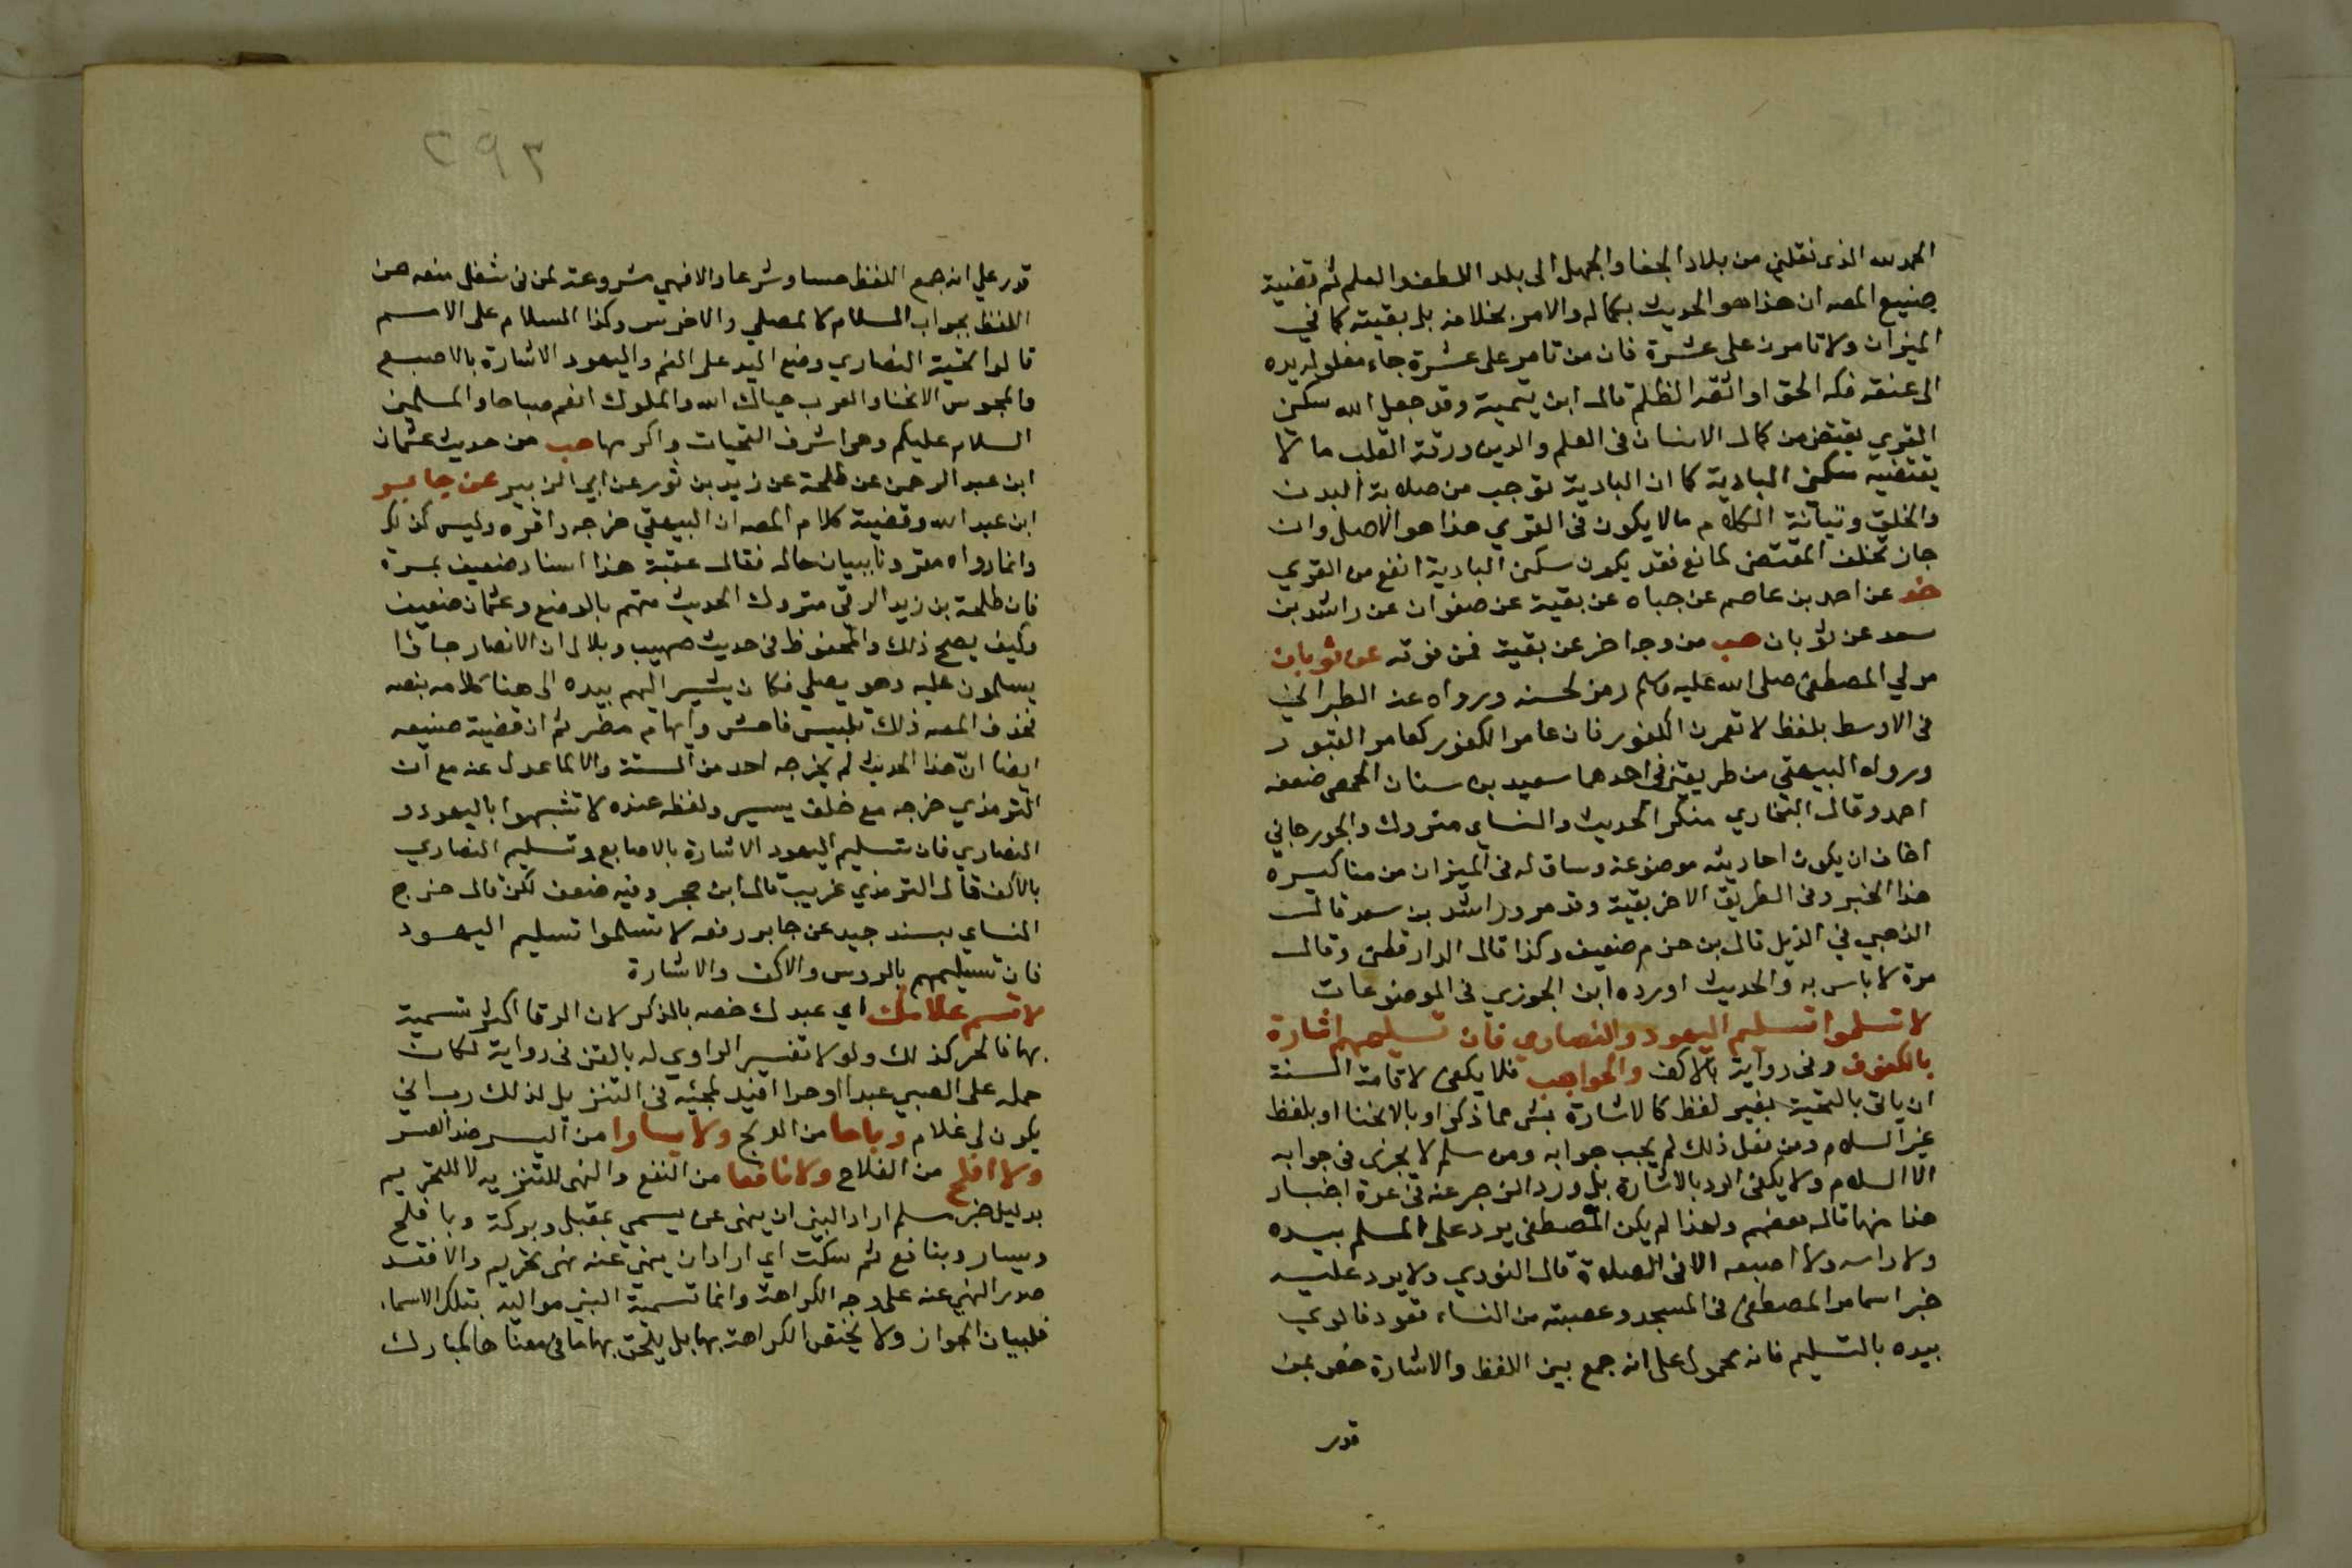 الحمد لله الذى نقلنى من بلاد الجفا والجهل الى بلد اللطف والعلم ثم قضية
صنيع المصه ان هذا هو الحديث بكماله والامر بخلافه بل بقيته كما في
الميزان ولا تامرن على عشرة فان من تامر على عشرة جاء مغلولة يده
الى عنقه فكه الحق او اوثقه الظلم قال ابن تيمية وقد جعل الله سكنى
القرى يقتضى من كمال الانسان في العلم والدين ورقة القلب ما لا
يقتضيه سكنى البادية كما ان البادية توجب من صلابة البدن
والخلق ومتانة الكلام ما لا يكون في القرى هذا هو الاصل وان
جاز تخلف المقتضى لمانع فقد يكون سكنى البادية انفع من القرى
خد عن احمد بن عاصم عن حياه عن بقية عن صفوان عن راشد بن
سعد عن ثوبان هب من وجه اخر عن بقية فمن فوقه عن ثوبان
مولى المصطفى صلى الله عليه وسلم رمز لحسنه ورواه عنه الطبراني
في الاوسط بلفظ لا تعمرن الكفور فان عامر الكفور كعامر القبور
ورواه البيهقي من طريقين في احدهما سعيد بن سنان الحمصى ضعفه
احمد وقال البخاري منكر الحديث والنساي متروك والجورجاني
اخاف ان يكون احاديثه موضوعة وساق له في الميزان من مناكيره
هذا الخبر وفي الطريق الاخر بقية وقد مر وراشد بن سعد قال
الذهبي في الذيل قال بن حزم ضعيف وكذا قال الدارقطني وقال
مرة لا باس به والحديث اورده ابن الجوزي في الموضوعات
لا تسلموا تسليم اليهود والنصاري فان تسليمهم اشارة
بالكفوف وفي رواية بالاكف والحواجب فلا يكفى لاقامة السنة
ان ياتى بالتحية بغير لفظ كالاشارة بشى مما ذكر او بالانحنا او بلفظ
غير السلام ومن فعل ذلك لم يجب جوابه ومن سلم لا يجزى في جوابه
الا السلام ولا يكفى الرد بالاشارة بل ورد الزجر عنه في عدة اخبار
هذا منها قاله بعضهم ولهذا لم يكن المصطفى يرد على المسلم بيده
ولا راسه ولا اصبعه الا في الصلاة قال النووي ولا يرد عليه
خبر اسما مر المصطفى في المسجد وعصبته من النساء قعود فالوى
بيده بالتسليم فانه محمول على انه جمع بين اللفظ والاشارة خص بمن
قدر
٢٩٣
قدر علي انه جمع اللفظ حسا وشرعا والا فهي مشروعة لمن في شغل منعه من
اللفظ بجواب السلام كالمصلي والاخرس وكذا السلام على الاصم
قالوا تحية النصاري وضع اليد على الفم واليهود الاشارة بالاصبع
والمجوس الانحنا والعرب حياك الله والملوك انعم صباحا والمسلمين
السلام عليكم وهي اشرف التحيات واكرمها هب من حديث عثمان
ابن عبد الرحمن عن طلحة عن زيد بن ثور عن ابي الزبير عن جابر
ابن عبد الله وقضية كلام المصه ان البيهقي خرجه واقره وليس كذلك
وانما رواه مقرونا ببيان حاله فقال عقبة هذا اسناد ضعيف بمرة
فان طلحة بن زيد الرقي متروك الحديث متهم بالوضع وعثمان ضعيف
وكيف يصح ذلك والمحفوظ في حديث صهيب وبلال ان الانصار جاؤا
يسلمون عليه وهو يصلي فكان يشير اليهم بيده الى هنا كلامه بنصه
فحذف المصه ذلك تلبيس فاحش وايهام مضر ثم ان قضية صنيعه
ايضا ان هذا الحديث لم يخرجه احد من الستة والا لما عدل عنه مع ان
الترمذي خرجه مع خلف يسير ولفظه عنده لا تشبهوا باليهود و
النصاري فان تسليم اليهود الاشارة بالاصابع وتسليم النصاري
بالاكف قال الترمذي غريب قال ابن حجر وفيه ضعف لكن قال خرج
النساي بسند جيد عن جابر رفعه لا تسلموا تسليم اليهود
فان تسليمهم بالروس والاكف والاشارة
لا تسم غلامك اي عبدك خصه بالذكر لان الرقا اكثر تسمية
بها فالحر كذلك ولولا تفسير الراوي له بالقن في رواية لكان
حمله على الصبي عبدا او حرا افيد لمجيئه في التنزيل لذلك رب انى
يكون لى غلام رباحا من الربح ولا يسارا من اليسر ضد العسر
ولا افلح من الفلاح ولا نافعا من النفع والنهى للتنزيه لا للتحريم
بدليل خبر مسلم اراد النبي ان ينهى عن يسمي بمقبل وبركة وبافلح
وبيسار وبنافع ثم سكت اي اراد ان ينهى عنه نهى تحريم والا فقد
صدر النهى عنه على وجه الكراهة وانما تسمية النبي مواليه بتلك الاسماء
فلبيان الجواز ولا يختص الكراهة بها بل يلحق بها ما في معناها كمبارك